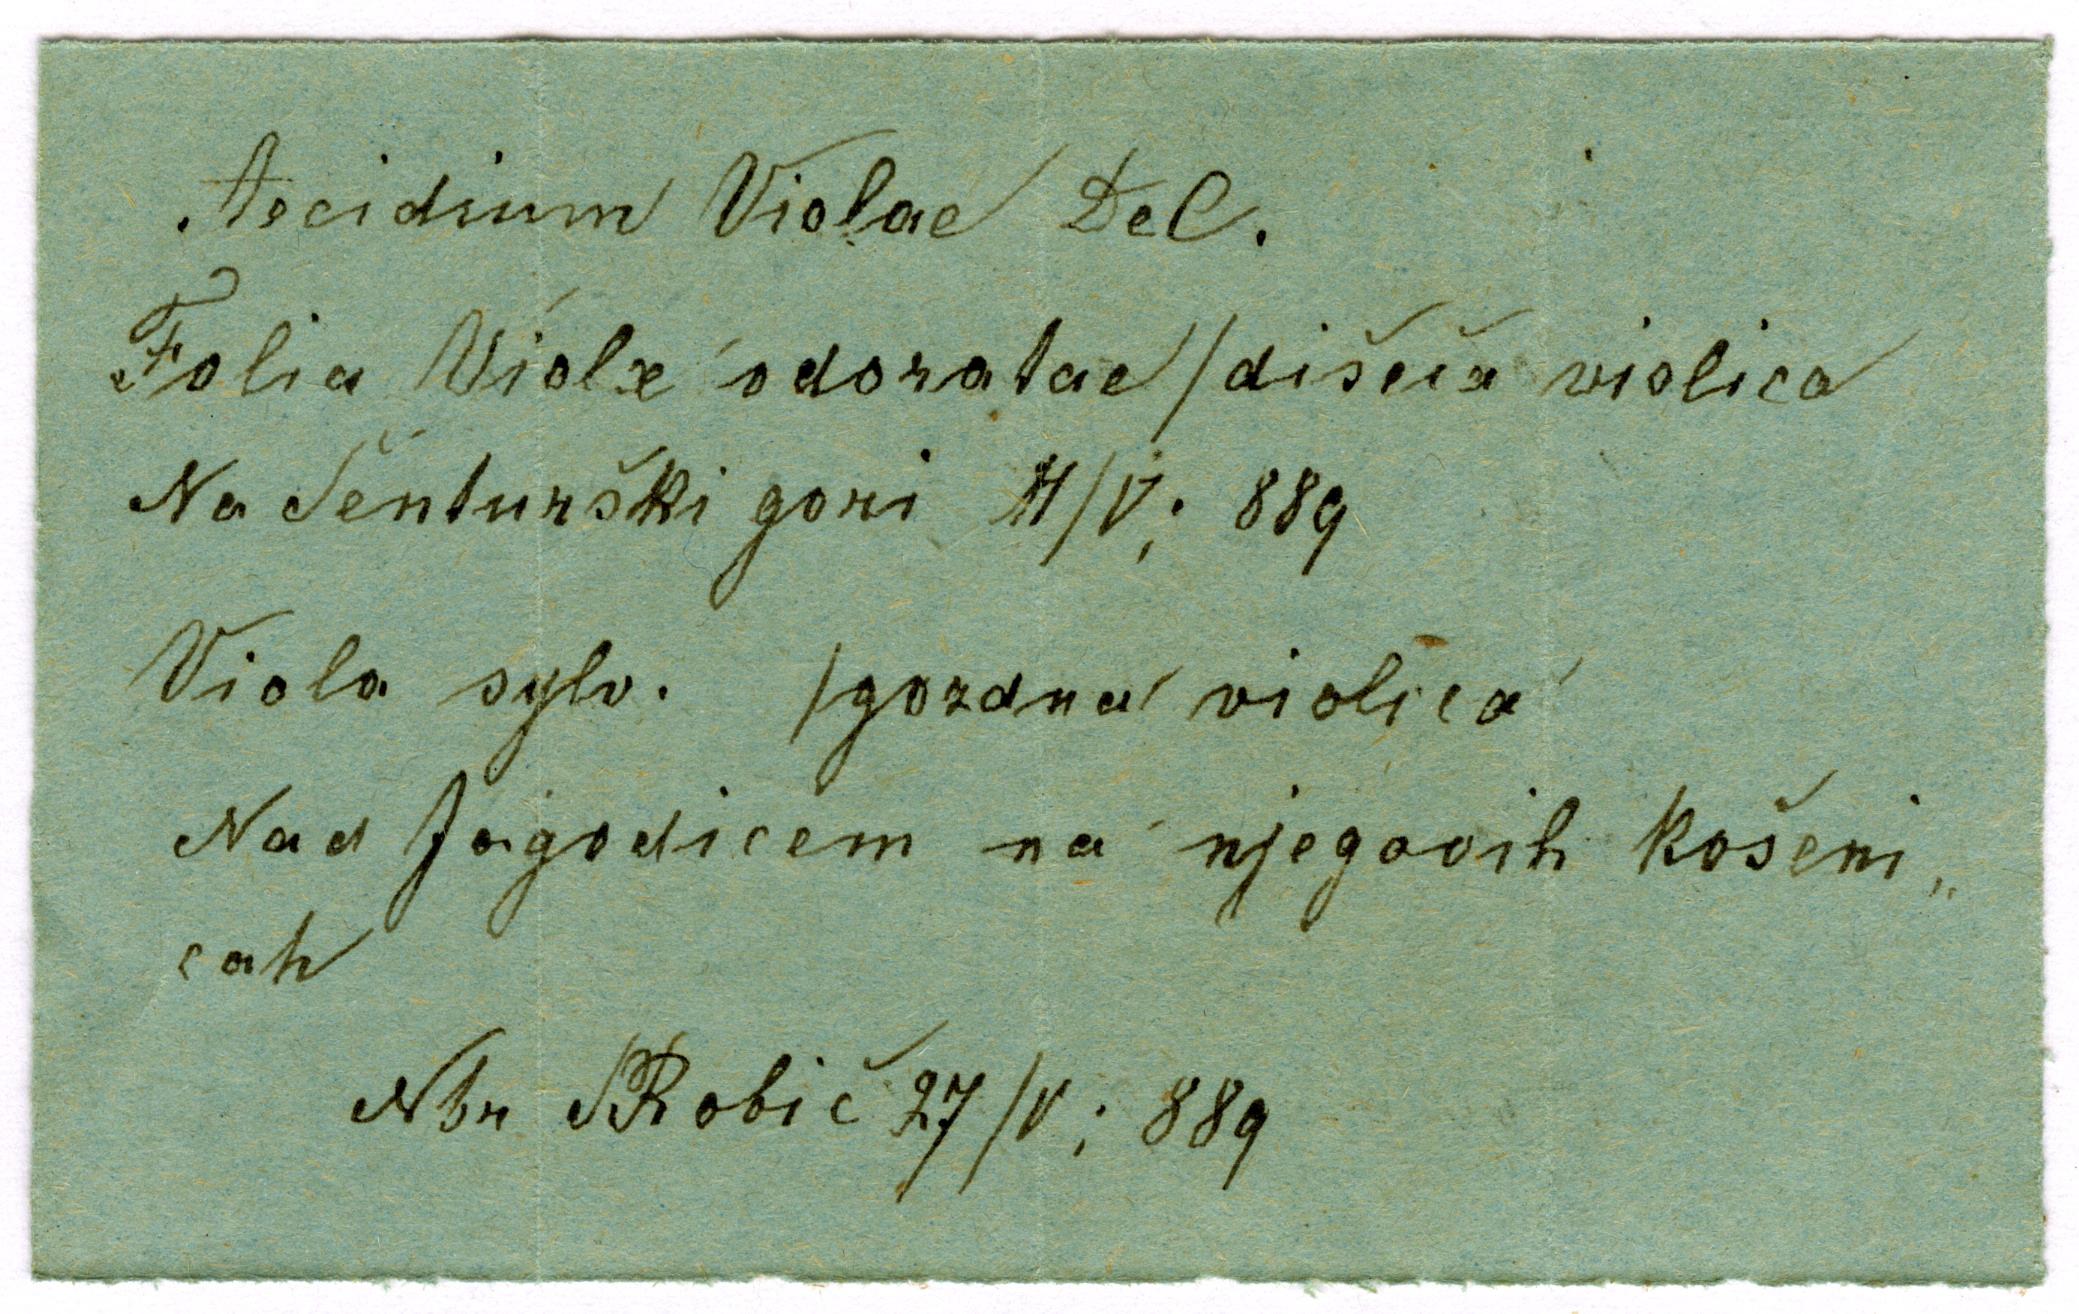 Aecidium Violae DeC.
Folia Violæ odoratae /dišeča violica
Na Šenturški gori 11/V; 889
Viola sylv. /gozdna violica
Nad Jagodicem na njegovih košeni„
cah
Nbr SRobič 27/V; 889